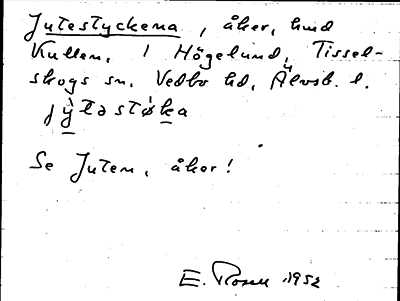 Jutestyckena, åker, hmd
Kullen, 1 Högelund, Tissel-
skogs sn. Vedbo hd, Älvsb. l.
jỳtəstø̀ka
Se Juten, åker!
E. Rosell 1952